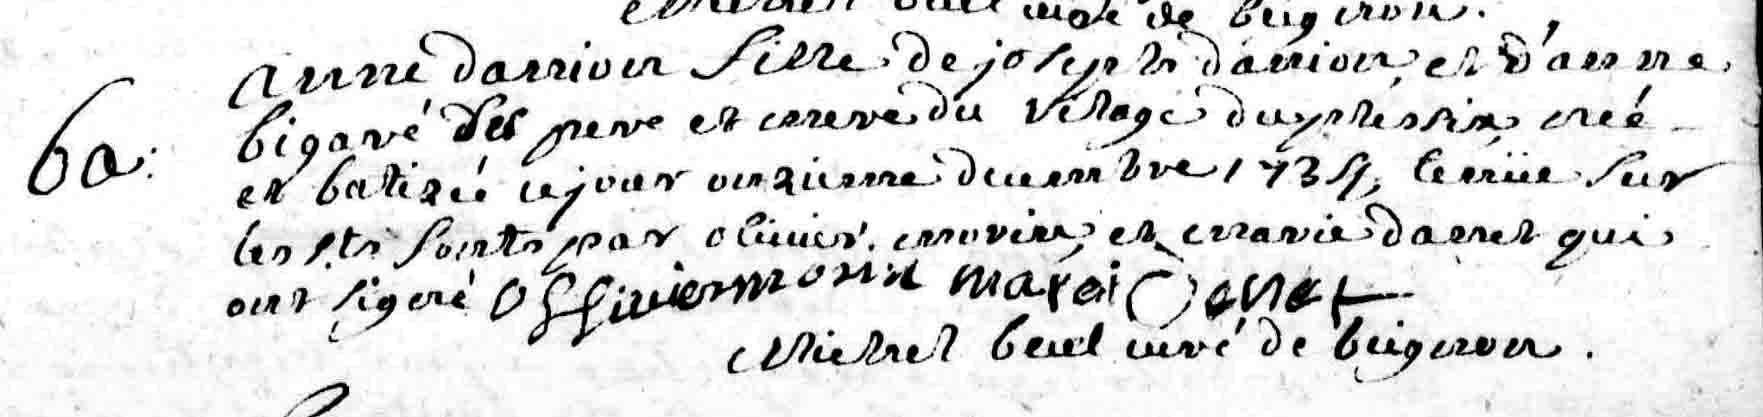 curé de buignon.
anne danion fille de joseph danion, et d'anne
ba:
bigaré des pere et mere du vilage du plessix née
et batizée ce jour onzieme decembre 1735, tenüe sur
les sts fonts par olivier morin, et marie danet qui
ont signé Ollivier morin marei Danet
Michel beul curé de buignon.